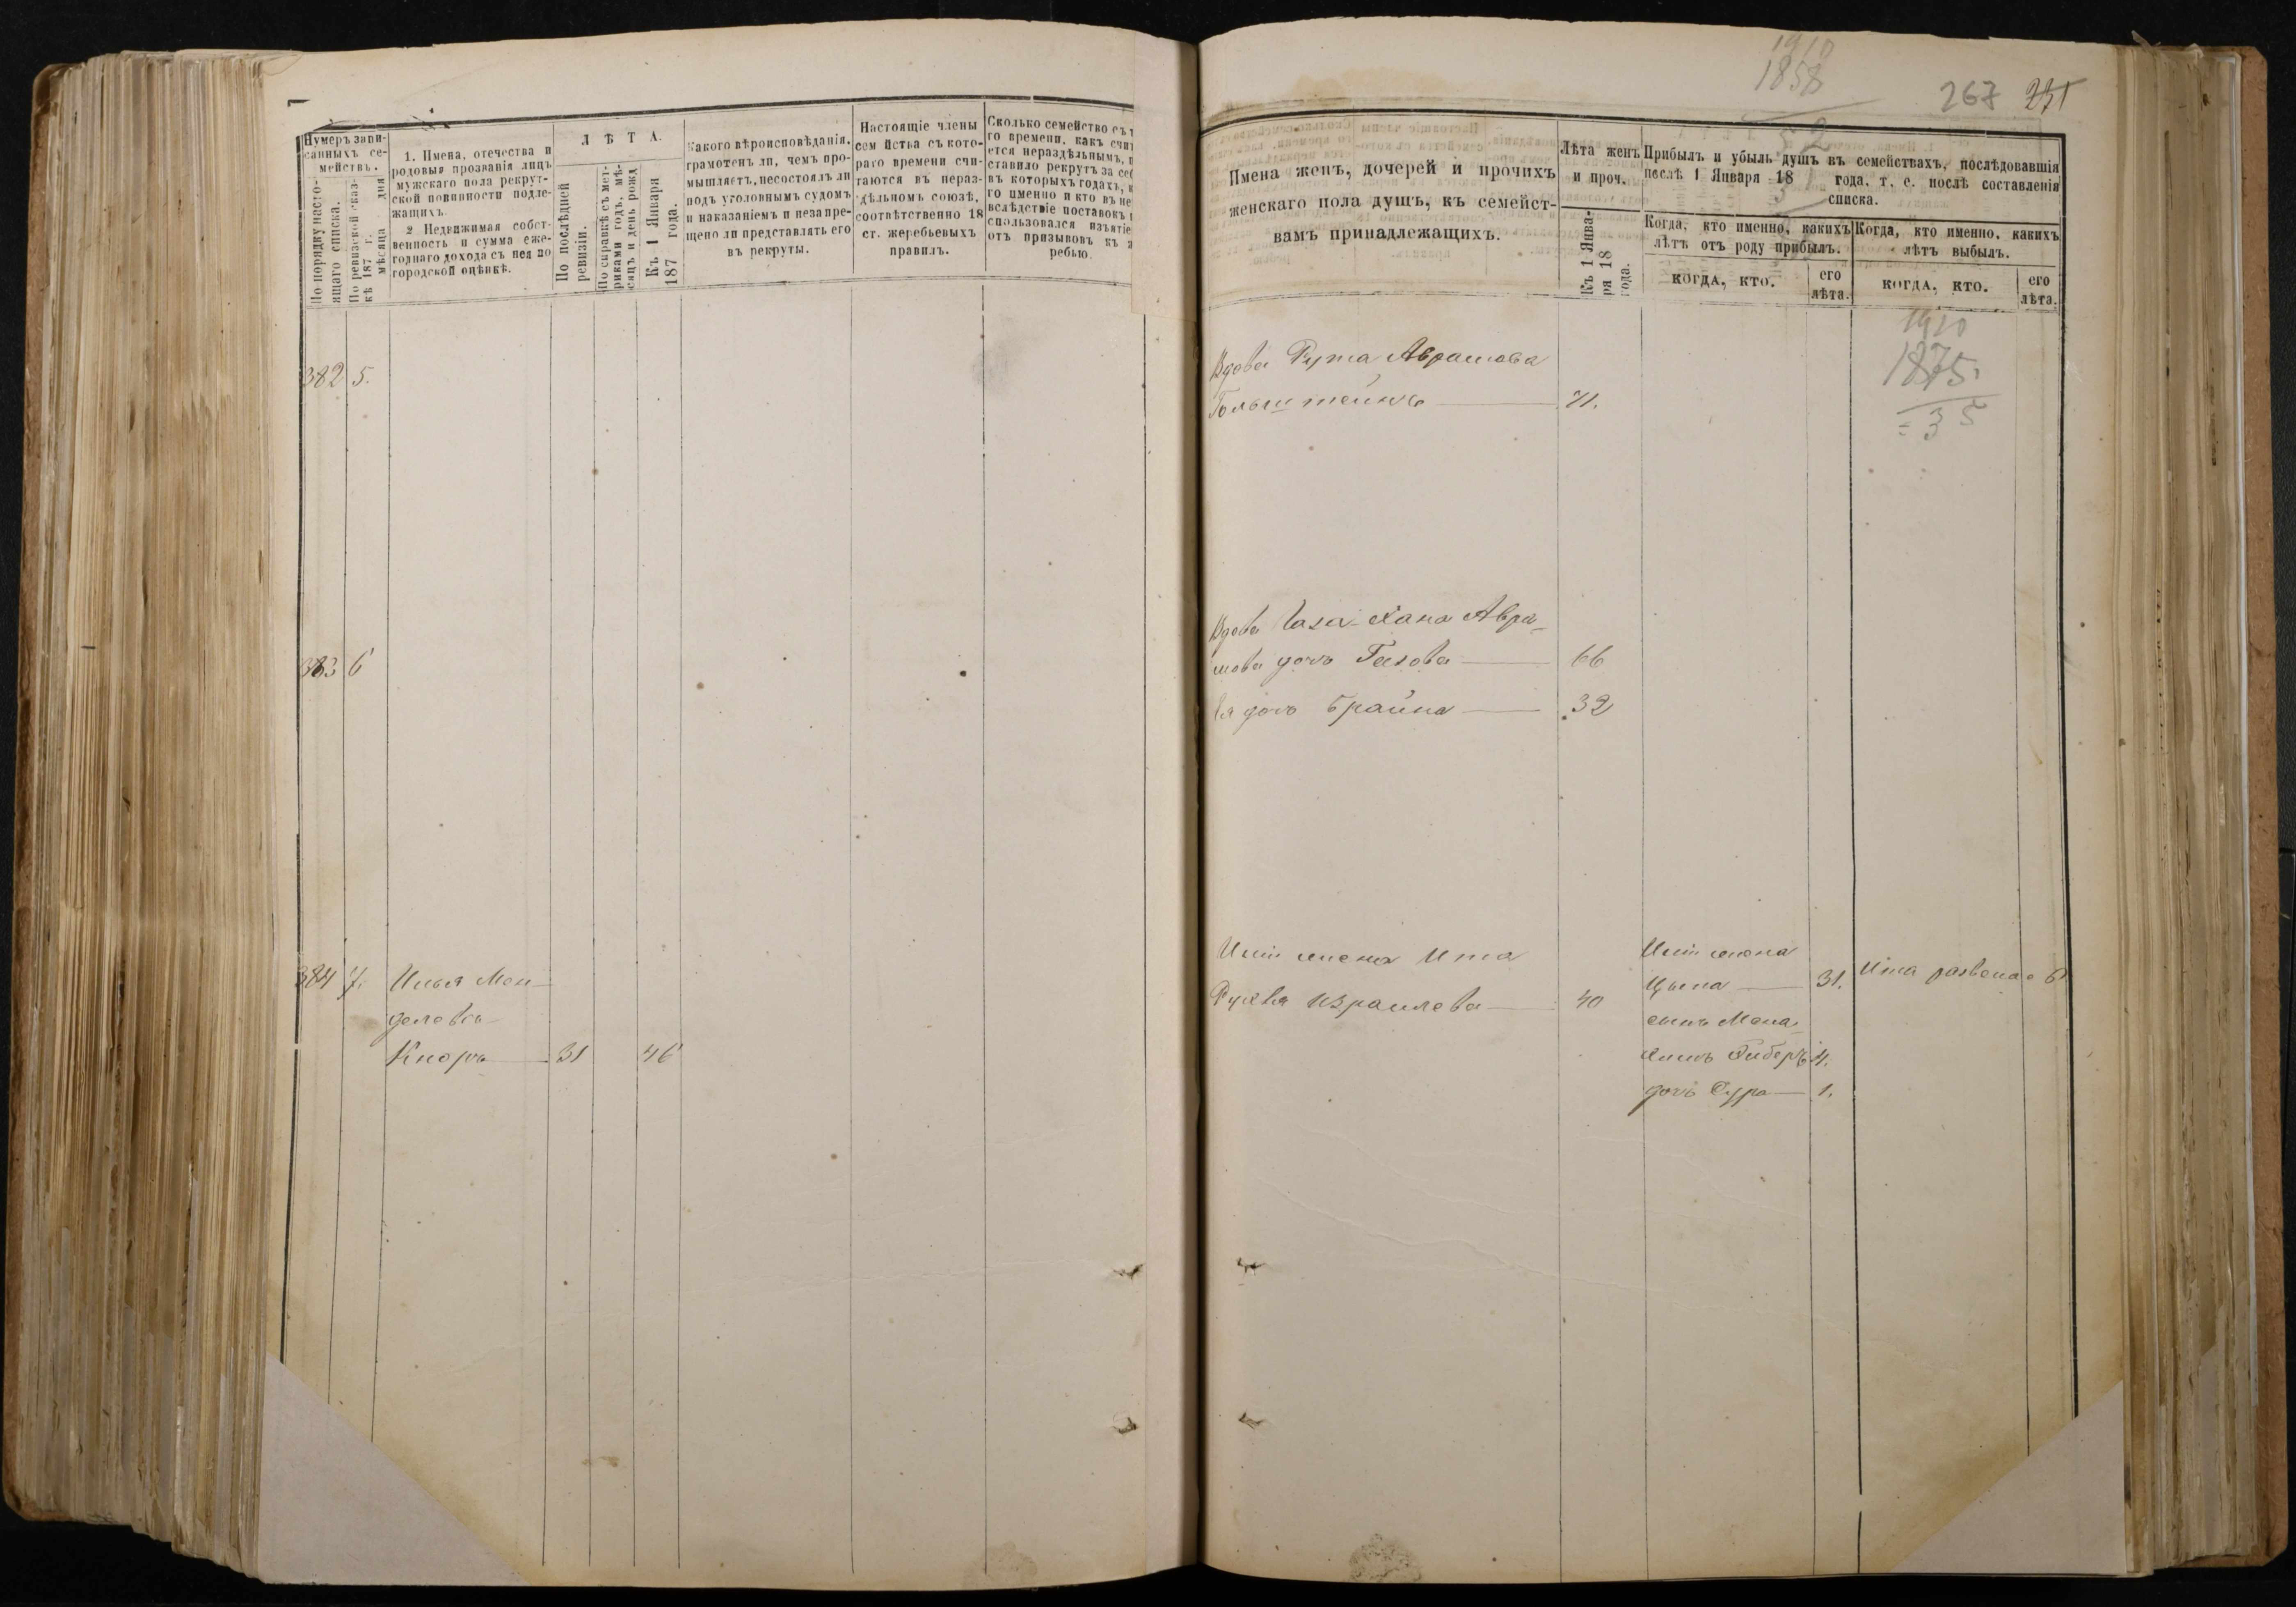 Нумеръ запи-
санныхъ се-
мействъ.
По порядку насто-
ящаго списка.
По ревизской сказ-
кѣ 187 г.
мѣсяца дня
1. Имена, отечества и
родовыя прозванія лицъ
мужскаго пола рекрут-
ской повинности подле-
жащихъ.
2 Недвижимая собст-
венность и сумма еже-
годнаго дохода съ нея по
городской оцѣнкѣ.
ЛѢТА.
По послѣдней
ревизіи.
По справкѣ съ мет-
риками годъ, мѣ-
сяцъ и день рожд
Къ 1 Января
187 года.
Какого вѣроисповѣданія,
грамотенъ ли, чемъ про-
мышляетъ, несостоялъ ли
подъ уголовнымъ судомъ
и наказаніемъ и незапре-
щено ли представлять его
въ рекруты.
Настоящіе члены
сем йства съ кото-
раго времени счи-
таются въ нераз-
дѣльномъ союзѣ,
соотвѣтственно 18
ст. жеребьевыхъ
правилъ.
Сколько семейство съ т
го времени, какъ счит
ется нераздѣльнымъ, п
ставило рекрутъ за себ
въ которыхъ годахъ, к
го именно и кто въ не
вслѣдствіе поставокъ
спользовался изъятіе
отъ призывовъ къ ж
ребью.
382 5.
383 6
384 7. Илья Мен-
делевъ
Кноръ 31 46
1910
1858
52
267 251
Имена женъ, дочерей и прочихъ
женскаго пола душъ, къ семейст-
вамъ принадлежащихъ.
Лѣта женъ
и проч.
Къ 1 Янва-
ря 18
года.
Прибылъ и убыль душъ въ семействахъ, послѣдовавшія
послѣ 1 Января 18 года, т. е. послѣ составленія
списка.
Когда, кто именно, какихъ
лѣтъ отъ роду прибылъ.
Когда, кто именно, какихъ
лѣтъ выбылъ.
КОГДА, КТО.
его
лѣта.
КОГДА, КТО.
его
лѣта.
1910
1875
= 35
Вдова Рута Абрамова
Гольштейнъ 71.
Вдова Хана Абра-
мова дочь 66
Ея дочь Брайна 32
жена Ита
Израилева 40
жена
Цына 31.
сынъ Мена-
4.
дочь Сура 1.
Ита разведена